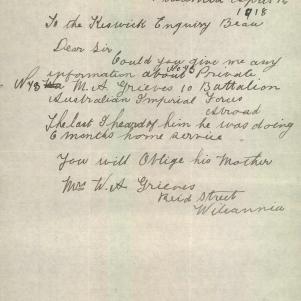 1918
To the Keswick Enquiry Beau
Dear Sir
Could you give me any
information about Private
M. A Grieves 10 Battalion
Australian Imperial Forces
Abroad
The last I heard of him he was doing
6 months home service
You will Oblige his Mother
Mrs W. A Grieves
Reid Street
Wilcannia